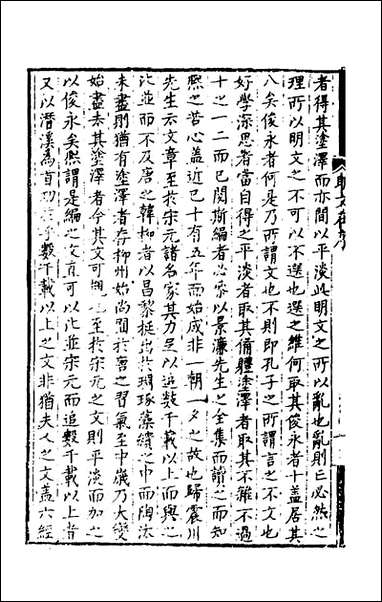 明文在序
者得其塗澤而亦間以平淡此明文之所以亂也亂則已必然之
理所以明文之不可以不選也選之維何取其俊永者十盖居其
八矣俊永者何是乃所謂文也不則即孔子之所謂言之不文也
好學深思者當自得之平淡者取其備軆塗澤者取其不雜不過
十之一二而已閱斯編者必家以景濂先生之全集而讀之而知
熙之苦心盖近已十有五年而始成非一朝一夕之故也歸震川
先生云文章至於宋元諸名家其力足以追數千載以上而與之
比並而不及唐之韓栁者以昌黎挺出於琱琢藻繢之中而陶汰
未盡則猶有塗澤者存栁州始尚囿於唐之習氣至中歲乃大變
始盡去其塗澤者今其文可也至於宋元之文則平淡而加之
以俊永矣熙謂是編之文直可以比並宋元而追數千載以上者
又以潛溪為首功數千載以上之文非猶夫人之文盖六經